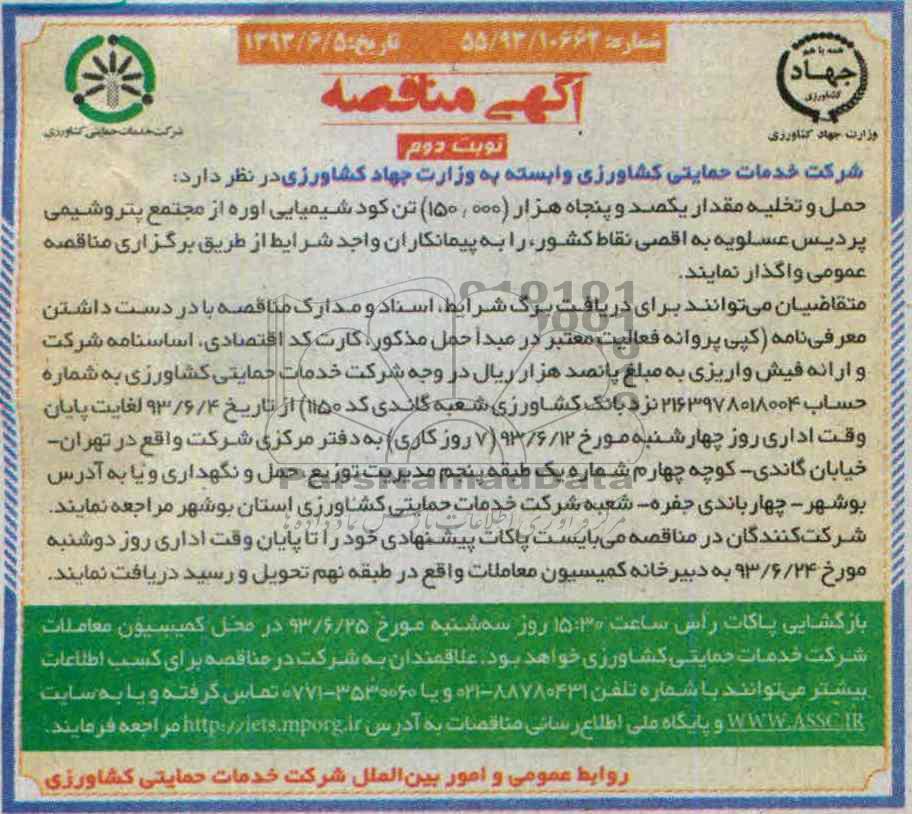 شماره: ۵۵/۹۳/۱۰۶۶۲ تاریخ: ۱۳۹۳/۶/۵
همه با هم
جهاد
کشاورزی
وزارت جهاد کشاورزی
شرکت خدمات حمایتی کشاورزی
آگهی مناقصه
نوبت دوم
شرکت خدمات حمایتی کشاورزی وابسته به وزارت جهاد کشاورزی در نظر دارد:
حمل و تخلیه مقدار یکصد و پنجاه هزار (۱۵۰٫۰۰۰) تن کود شیمیایی اوره از مجتمع پتروشیمی
پردیس عسلویه به اقصی نقاط کشور، را به پیمانکاران واجد شرایط از طریق برگزاری مناقصه
عمومی واگذار نمایند.
متقاضیان می‌توانند برای دریافت برگ شرایط، اسناد و مدارک مناقصه با در دست داشتن
معرفی‌نامه (کپی پروانه فعالیت معتبر در مبدأ حمل مذکور، کارت کد اقتصادی، اساسنامه شرکت
و ارائه فیش واریزی به مبلغ پانصد هزار ریال در وجه شرکت خدمات حمایتی کشاورزی به شماره
حساب ۲۱۶۳۹۷۸۰۱۸۰۰۴ نزد بانک کشاورزی شعبه گاندی کد ۱۱۵۰) از تاریخ ۹۳/۶/۴ لغایت پایان
وقت اداری روز چهارشنبه مورخ ۹۳/۶/۱۲ (۷ روز کاری) به دفتر مرکزی شرکت واقع در تهران-
خیابان گاندی- کوچه چهارم شماره یک طبقه پنجم مدیریت توزیع، حمل و نگهداری و یا به آدرس
بوشهر- چهار باندی جفره- شعبه شرکت خدمات حمایتی کشاورزی استان بوشهر مراجعه نمایند.
شرکت‌کنندگان در مناقصه می‌بایست پاکات پیشنهادی خود را تا پایان وقت اداری روز دوشنبه
مورخ ۹۳/۶/۲۴ به دبیرخانه کمیسیون معاملات واقع در طبقه نهم تحویل و رسید دریافت نمایند.
بازگشایی پاکات رأس ساعت ۱۵:۳۰ روز سه‌شنبه مورخ ۹۳/۶/۲۵ در محل کمیسیون معاملات
شرکت خدمات حمایتی کشاورزی خواهد بود. علاقمندان به شرکت در مناقصه برای کسب اطلاعات
بیشتر می‌توانند با شماره تلفن ۸۸۷۸۰۴۳۱-۰۲۱ و یا ۳۵۳۰۰۶۰-۰۷۷۱ تماس گرفته و یا به سایت
WWW.ASSC.IR و پایگاه ملی اطلاع‌رسانی مناقصات به آدرس http://iets.mporg.ir مراجعه فرمایند.
روابط عمومی و امور بین‌الملل شرکت خدمات حمایتی کشاورزی
ParsNamadData